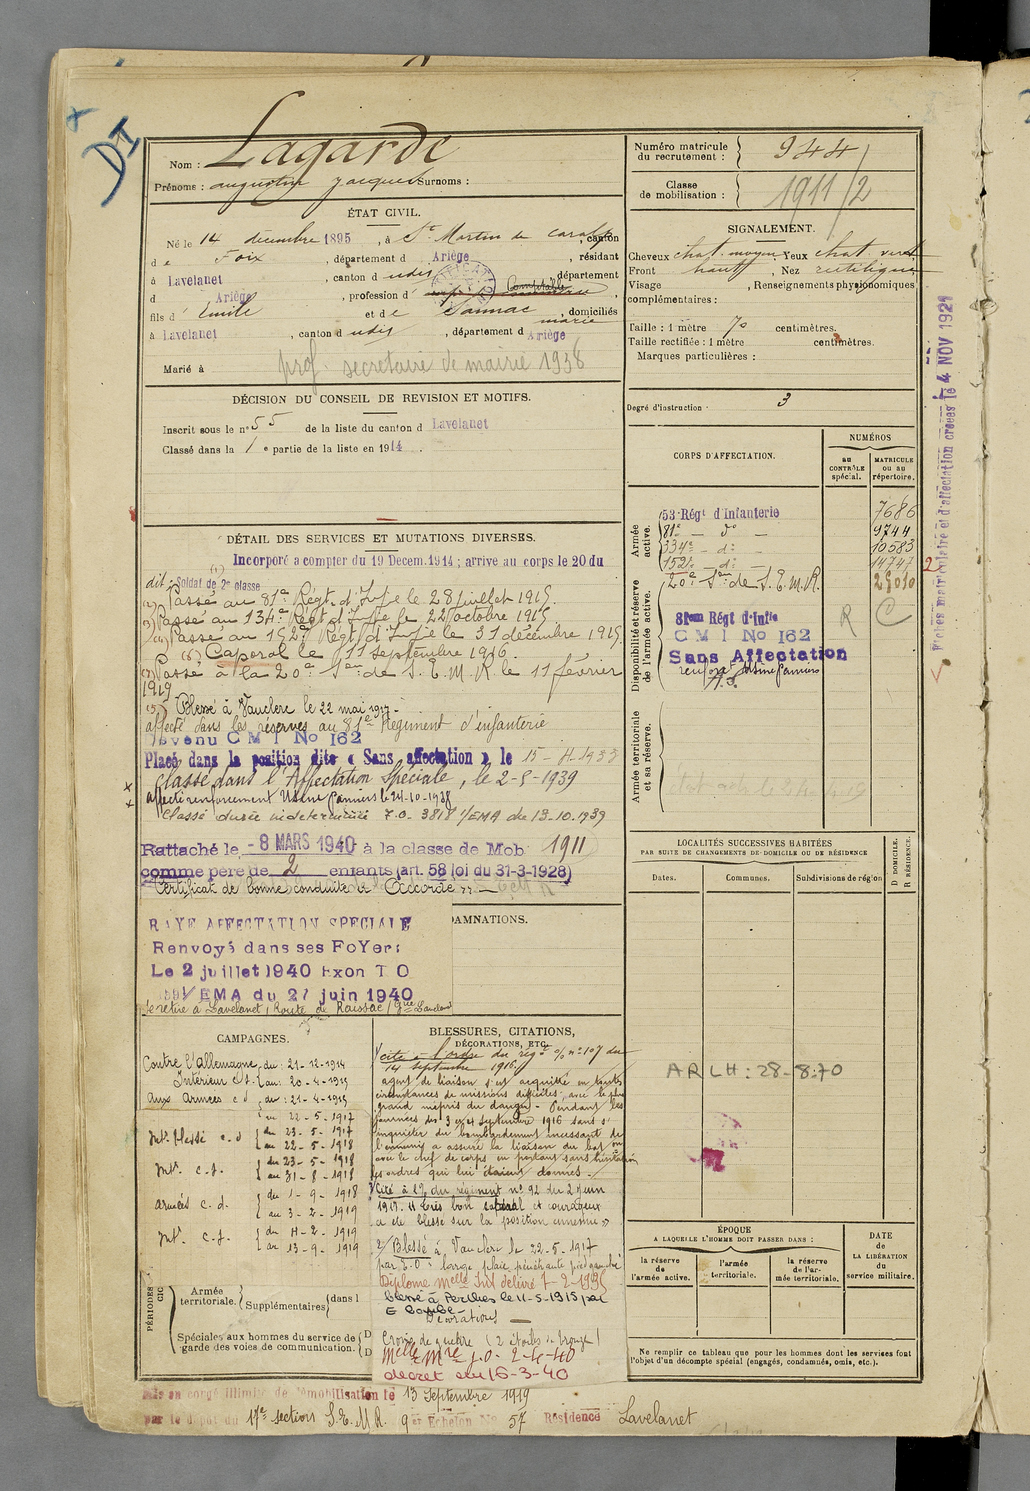 DI
Nom : Lagarde
Prénoms : augustin jacques Surnoms :
Numéro matricule du recrutement : 944
Classe de mobilisation : 1911/2
ÉTAT CIVIL.
Né le 14 décembre 1895, à St Martin de Caralp, canton
de Foix, départment d Ariège, résidant
à Lavelanet, canton d udis, département
d Ariège, profession d Comptable,
fils d' Emile et de Sannac marie, domiciliés
à Lavelanet, canton d udis, département d Ariège
prof. secretaire de mairie 1938
Marié à
SIGNALEMENT.
Cheveux chat. moyen Yeux chat. verd
Front haut, Nez rectiligne
Visage , Renseignements physionomiques
complémentaires :
Taille : 1 mètre 70 centimètres.
Taille rectifiée : 1 mètre centimètres.
Marques particulières :
Degré d'instruction : 3
DÉCISION DU CONSEIL DE REVISION ET MOTIFS.
Inscrit sous le n° 55 de la liste du canton d Lavelanet
Classé dans la 1e partie de la liste en 1914.
DÉTAIL DES SERVICES ET MUTATIONS DIVERSES.
Incorporé a compter du 19 Decem.1914 ; arrive au corps le 20 du
dit ; Soldat de 2e classe
Passé au 81e Régt. d'Infie le 28 juillet 1915.
Passé au 134e Régt d'Infie le 22 octobre 1915
Passé au 152e Régt d'Infie le 31 décembre 1915
Caporal le 11 septembre 1916.
Passé à la 20e Son de S. E. M. R. le 11 février
1919
Blessé à Vauclerc le 22 mai 1917 -
affecté dans les réserves au 81e Régiment d'infanterie
devenu C M I No 162
Placé dans la position dite « Sans affectation » le 15-4-1933
Classé dans l'Affectation Spéciale, le 2-5-1939
affecté renforcement Usine Pamiers le 24-10-1938
Classé durée indéterminée 7.0- 3818 1/EMA de 13-10-1939
Rattaché le - 8 MARS 1940 à la classe de Mob 1911
comme père de 2 enfants (art. 58 loi du 31-3-1928)
Certificat de bonne conduite "Accordé"
RAYE AFFECTATION SPECIALE
Renvoyé dans ses FoYers
Le 2 juillet 1940 Exon T O
1/EMA du 27 juin 1940
Se retire à Lavelanet, Route de Raissac
DAMNATIONS.
CORPS D'AFFECTATION.
NUMÉROS
au CONTRÔLE spécial.
MATRICULE ou au répertoire.
Armée active.
53 Régt d'Infanterie 7686
81e - do - 9744
334e - do - 10583
152e - do - 14747
20e Son de S. E. M. R. 25010
Disponibilité et réserve de l'armée active.
81eme Régt d'Infie
C M I No 162 R C
Sans Affectation
renfort Usine Pamiers
A.S.
Armée territoriale et sa réserve.
Fiches matriculaire et d'affectation créées le 4 NOV 1921
LOCALITÉS SUCCESSIVES HABITÉES
PAR SUITE DE CHANGEMENTS DE DOMICILE OU DE RÉSIDENCE
Dates. Communes. Subdivisions de région
D DOMICILE. R RÉSIDENCE.
ARLH : 28-8-70
CAMPAGNES.
Contre l'allemagne du : 21-12-1914
Intérieur c.d. au : 20-4-1915
aux armées c d du : 21-4-1915
au 22-5-1917
Intr. blessé c.d du 23-5-1917
au 22-5-1918
Intr. c.d. du 23-5-1918
au 31-8-1918
armées c.d. du 1-9-1918
au 3-2-1919
Intr. c.d. du 4-2-1919
au 13-9-1919
BLESSURES, CITATIONS,
DÉCORATIONS, ETC.
cité à l'ordre du régt o/ n° 107 du
14 septembre 1916
agent de liaison s'est acquitté en toutes
circonstances de missions difficiles, avec le plus
grand mépris du danger - Pendant les
journées des 3 et 4 septembre 1916 sans s'
inquiéter du bombardement incessant de
l'ennemi a assuré la liaison du baton
avec le chef de corps en portant sans hésitation
les ordres qui lui étaient donnés.
Cité à l'O. du régiment n° 92 du 2 juin
1917. "très bon caporal et courageux
a été blessé sur la position ennemie"
2/ Blessé à Vauclerc le 22-5-1917
par E.O : large plaie pénétrante pied gauche
Diplome Melle Int délivré 7-2-1935
blessé à Perthes le 11-5-1915 par
E bombe -
Décorations
Croix de guerre (2 étoiles de bronze)
Melle Mre J.O- 2-4-40
décret du 16-3-40
PÉRIODES
Armée territoriale. Supplémentaires dans l
Spéciales aux hommes du service de garde des voies de communication. D D
ÉPOQUE
A LAQUELLE L'HOMME DOIT PASSER DANS :
la réserve de l'armée active.
l'armée territoriale.
la réserve de l'armée territoriale.
DATE de LA LIBÉRATION du service militaire.
Ne remplir ce tableau que pour les hommes dont les services font
l'objet d'un décompte spécial (engagés, condamnés, omis, etc.).
Mis en congé illimité de démobilisation le 13 septembre 1919
par le dépôt du 17e section S.E.M.R. 9er Echelon No 57 Résidence Lavelanet